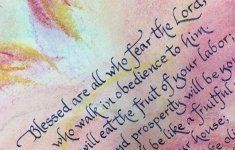 Blessed are all who fear the Lord,
who walk in obedience to him
will eat the fruit of your labor;
and prosperity will be you
be like a fruitful
your house;